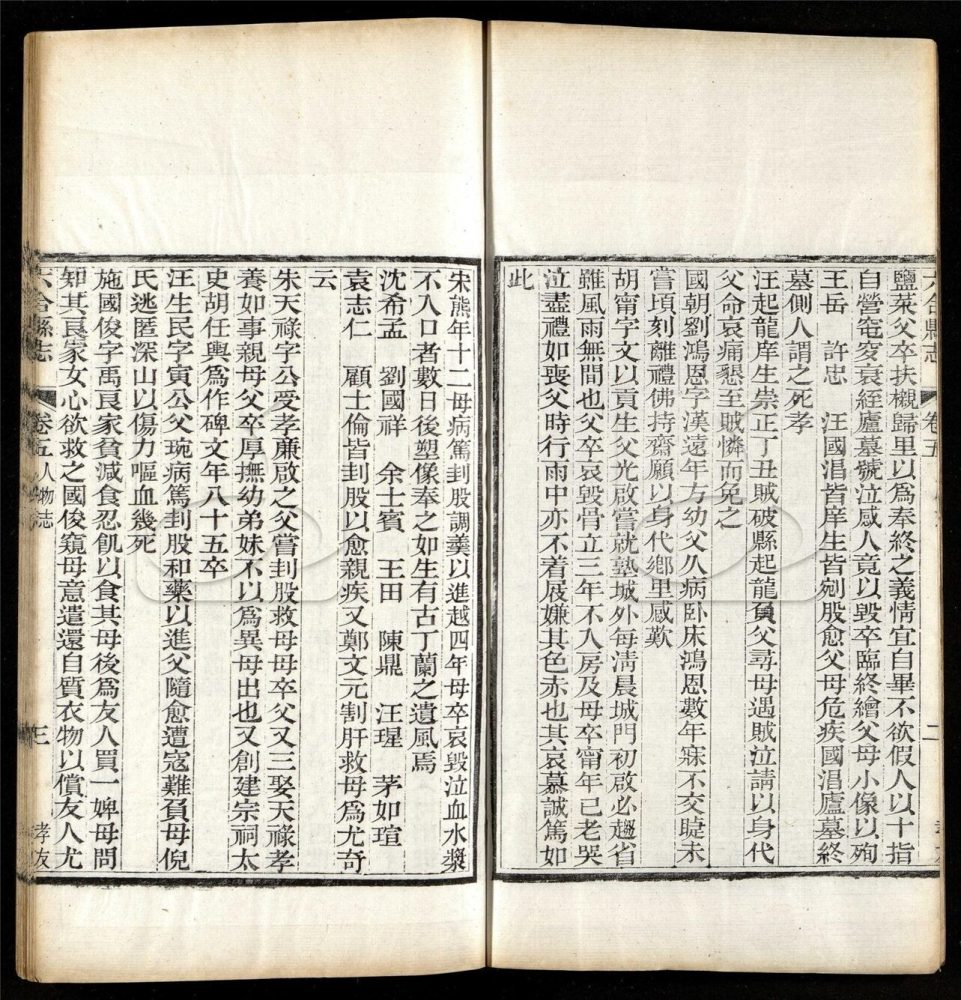 六合縣志 卷五 二 孝友
鹽菜父卒扶櫬歸里以爲奉終之義情宜自畢不欲假人以十指
自營窀穸衰絰廬墓號泣感人竟以毀卒臨終繪父母小像以殉
王岳 許忠 汪國淐皆庠生皆剜股愈父母危疾國淐廬墓終
墓側人謂之死孝
汪起龍庠生崇正丁丑賊破縣起龍負父尋母遇賊泣請以身代
父命哀痛懇至賊憐而免之
國朝劉鴻恩字漢遠年方幼父久病卧床鴻恩數年寐不交睫未
嘗頃刻離禮佛持齋願以身代鄉里感歎
胡甯字文以貢生父光啟嘗就塾城外每淸晨城門初啟必趨省
雖風雨無間也父卒哀毀骨立三年不入房及母卒甯年已老哭
泣盡禮如喪父時行雨中亦不着屐嫌其色赤也其哀慕誠篤如
此
宋熊年十二母病篤刲股調羹以進越四年母卒哀毀泣血水漿
不入口者數日後塑像奉之如生有古丁蘭之遺風焉
沈希孟 劉國祥 余士賓 王田 陳鼎 汪瑆 茅如瑄
袁志仁 顧士倫皆刲股以愈親疾又鄭文元割肝救母爲尤奇
云
朱天祿字公受孝廉啟之父嘗刲股救母母卒父又三娶天祿孝
養如事親母父卒厚撫幼弟妹不以爲異母出也又創建宗祠太
史胡任輿爲作碑文年八十五卒
汪生民字寅公父琬病篤刲股和藥以進父隨愈遭寇難負母倪
民逃匿深山以傷力嘔血幾死
施國俊字禹良家貧減食忍飢以食其母後爲友人買一婢母問
知其良家女心欲救之國俊窺母意遣還自質衣物以償友人尤
六合縣志 卷五人物志 三 孝友